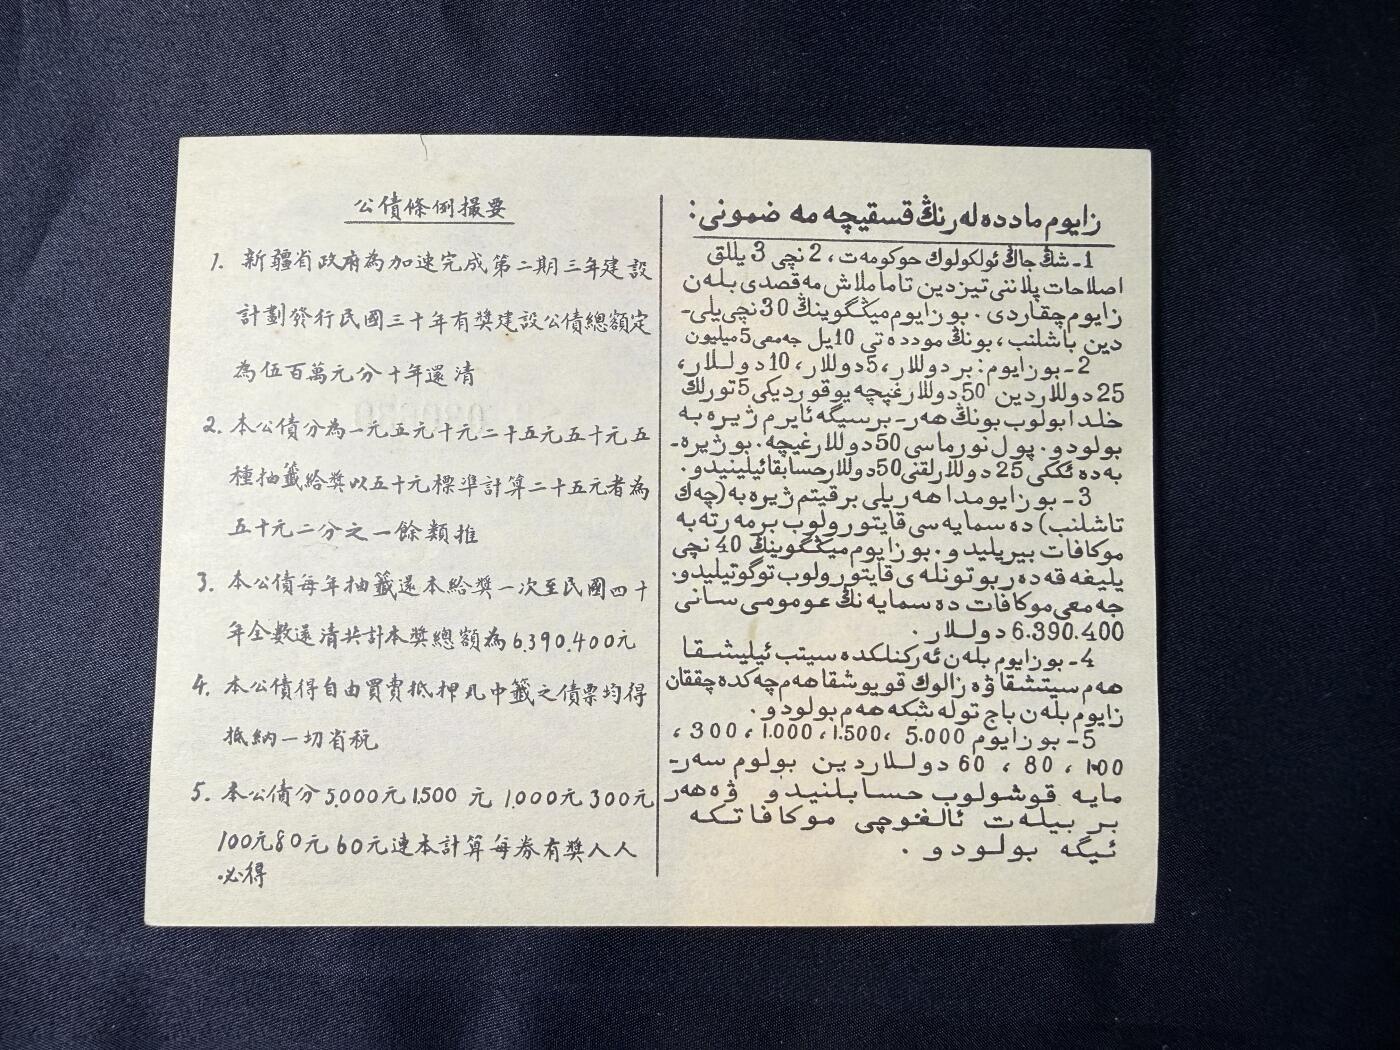 公債條例撮要
1. 新疆省政府為加速完成第二期三年建設
計劃發行民國三十年有獎建設公債總額定
為伍百萬元分十年還清
2. 本公債分為一元五元十元二十五元五十元五
種抽籤給獎以五十元標準計算二十五元者為
五十元二分之一餘類推
3. 本公債每年抽籤還本給獎一次至民國四十
年全數還清共計本獎總額為6.390.400元
4. 本公債得自由買賣抵押凡中籤之債票均得
抵納一切省稅
5. 本公債分5.000元1.500元 1.000元300元
100元80元60元連本計算每券有獎人人
必得
زايوم ماددەلەرنىڭ قسقيچە مەضمونى:
1ـ شىڭ جاڭ ئولكولوك حوكومەت، 2نچى 3 يىللق
اصلاحات پلاننى تيزدين تاماملاش مەقصدى بىلەن
زايوم چقاردى. بو زايوم ميڭگوينىڭ 30نچى يلىـ
دين باشلنب، بونىڭ موددەتى 10يل جەمعى 5ميليون
2ـ بو زايوم: بر دوللار، 5دوللار، 10دوللار،
25دوللاردين 50دوللارغىچە يوقورديكى 5تورلك
خلدا بولوب بونىڭ هەرـ برسيگە ئايرم ژيرەبە
بولودو. پول نورماسى 50دوللارغيچە. بو ژيرەـ
بەدە ئككى 25 دوللارلقنى 50دوللار حسابقائيلينيدو.
3ـ بو زايومدا هەريلى برقيتم ژيرەبە (چەك
تاشلنب) دەسمايەسى قايتورولوب برمەرتەبە
موكافات بيريليدو. بو زايوم ميڭگوينىڭ 40نچى
يليغەقەدەر بوتونلەى قايتورولوب توگوتيليدو.
جەمعى موكافات دەسمايەنىڭ عومومى سانى
6.390.400 دوللار.
4ـ بو زايوم بىلەن ئەركنلكدە سيتب ئيليشقا
هەم سيتشقا ۋە زالوك قويوشقا هەم چەكدە چققان
زايوم بىلەن باج تولەشكە هەم بولودو.
5ـ بو زايوم 5.000، 1.500، 1.000، 300،
100، 80، 60 دوللاردين بولوم سەرـ
مايە قوشولوب حسابلنيدو ۋە هەر
بر بيلەت ئالغوچى موكافاتكە
ئيگە بولودو.